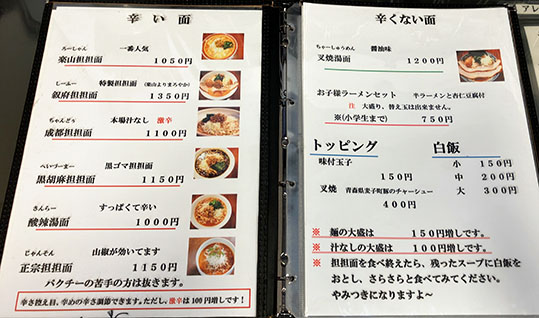 辛い面
ろーしゃん 一番人気
楽山担担面 1050円
しーふー 特製担担面 (楽山よりまろやか)
叙府担担面 1350円
ちゃんどぅ 本場汁なし 激辛
成都担担面 1100円
へいづーまー 黒ゴマ担担面
黒胡麻担担面 1150円
さんらー すっぱくて辛い
酸辣湯面 1000円
じゃんそん 山椒が効いてます
正宗担担面 1150円
パクチーの苦手の方は抜きます。
辛さ控え目、辛めの辛さ調節できます。ただし、激辛は100円増しです!
辛くない面
ちゃーしゅうめん 醤油味
叉焼湯面 1200円
お子様ラーメンセット 半ラーメンと杏仁豆腐付
注 大盛り、替え玉は出来ません。
※(小学生まで) 750円
トッピング
味付玉子
150円
叉焼 青森県麦子町豚のチャーシュー
400円
白飯
小 150円
中 200円
大 300円
※ 麺の大盛は 150円増しです。
※ 汁なしの大盛は 100円増しです。
※ 担担面を食べ終えたら、残ったスープに白飯を
おとし、さらさらと食べてみてください。
やみつきになりますよ~